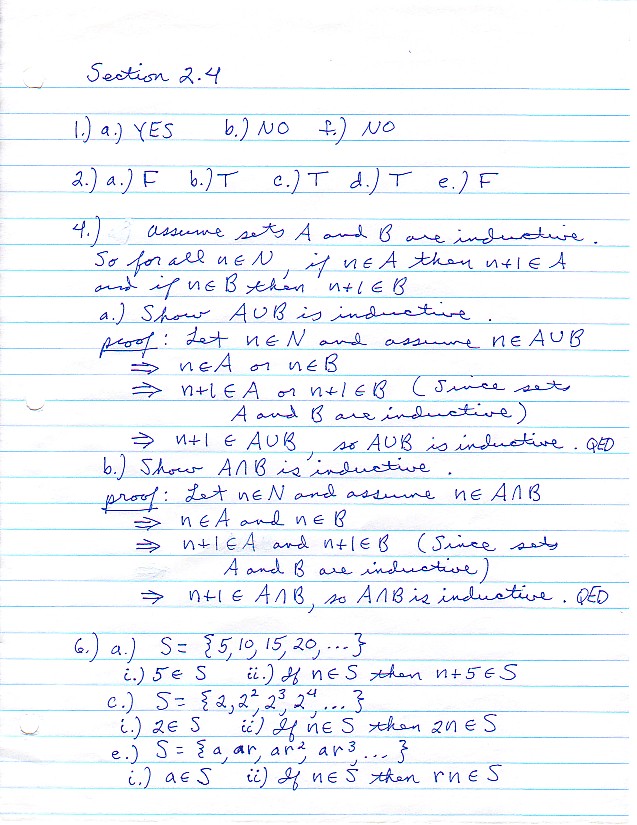 Section 2.4
1.) a.) YES b.) NO f.) NO
2.) a.) F b.) T c.) T d.) T e.) F
4.) assume sets A and B are inductive.
So for all n∈N, if n∈A then n+1∈A
and if n∈B then n+1∈B
a.) Show A∪B is inductive.
proof: Let n∈N and assume n∈A∪B
⇒ n∈A or n∈B
⇒ n+1∈A or n+1∈B (Since sets
A and B are inductive)
⇒ n+1 ∈ A∪B, so A∪B is inductive. QED
b.) Show A∩B is inductive.
proof: Let n∈N and assume n∈A∩B
⇒ n∈A and n∈B
⇒ n+1∈A and n+1∈B (Since sets
A and B are inductive)
⇒ n+1 ∈ A∩B, so A∩B is inductive. QED
6.) a.) S = {5, 10, 15, 20, ...}
i.) 5∈S ii.) If n∈S then n+5∈S
c.) S = {2, 2², 2³, 2⁴, ...}
i.) 2∈S ii) If n∈S then 2n∈S
e.) S = {a, ar, ar², ar³, ...}
i.) a∈S ii) If n∈S then rn∈S